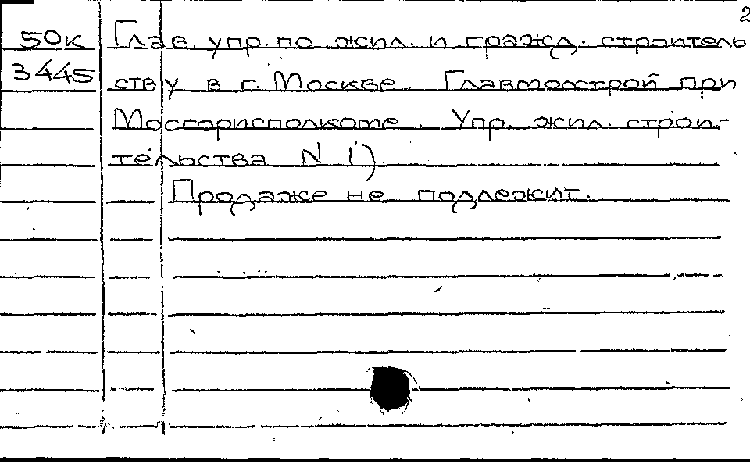 2
50К Глав. упр. по жил. и гражд. строитель
3445 ству в г. Москве. Главмосстрой при
Мосгорисполкоме. Упр. жил. строи-
тельства N 1)
Продаже не подлежит.